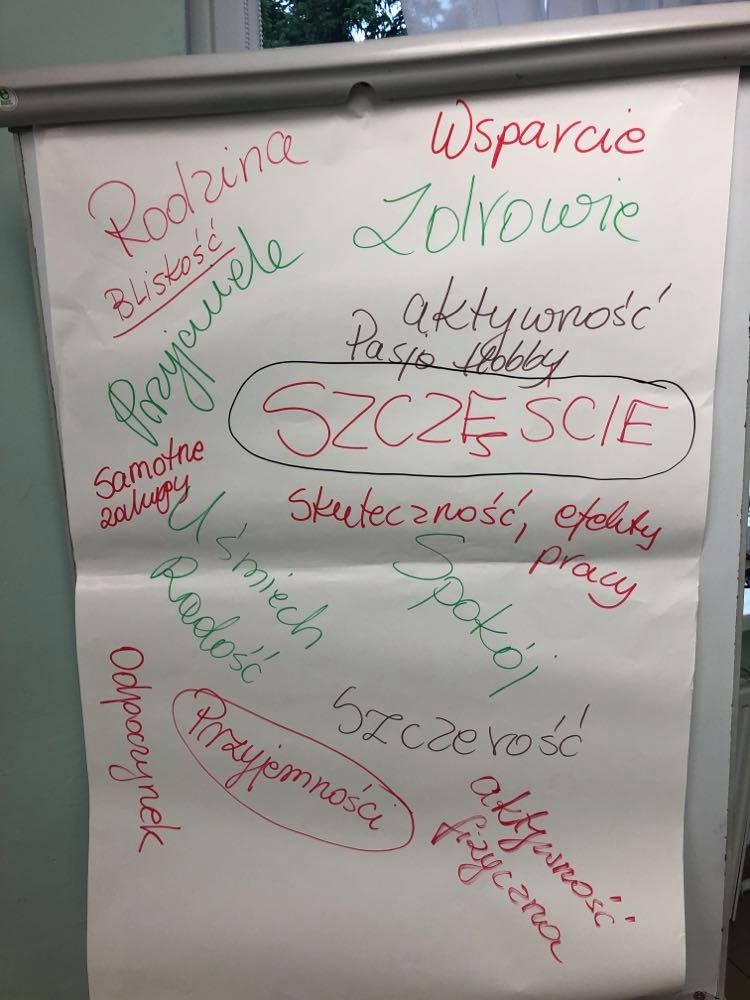 Rodzina
Wsparcie
Bliskość
Zdrowie
Przyjaciele
aktywność
Pasje Hobby
SZCZĘŚCIE
Samotne
zakupy
Skuteczność, efekty
pracy
Uśmiech
Radość
Spokój
Odpoczynek
Przyjemności
Szczerość
aktywność
fizyczna